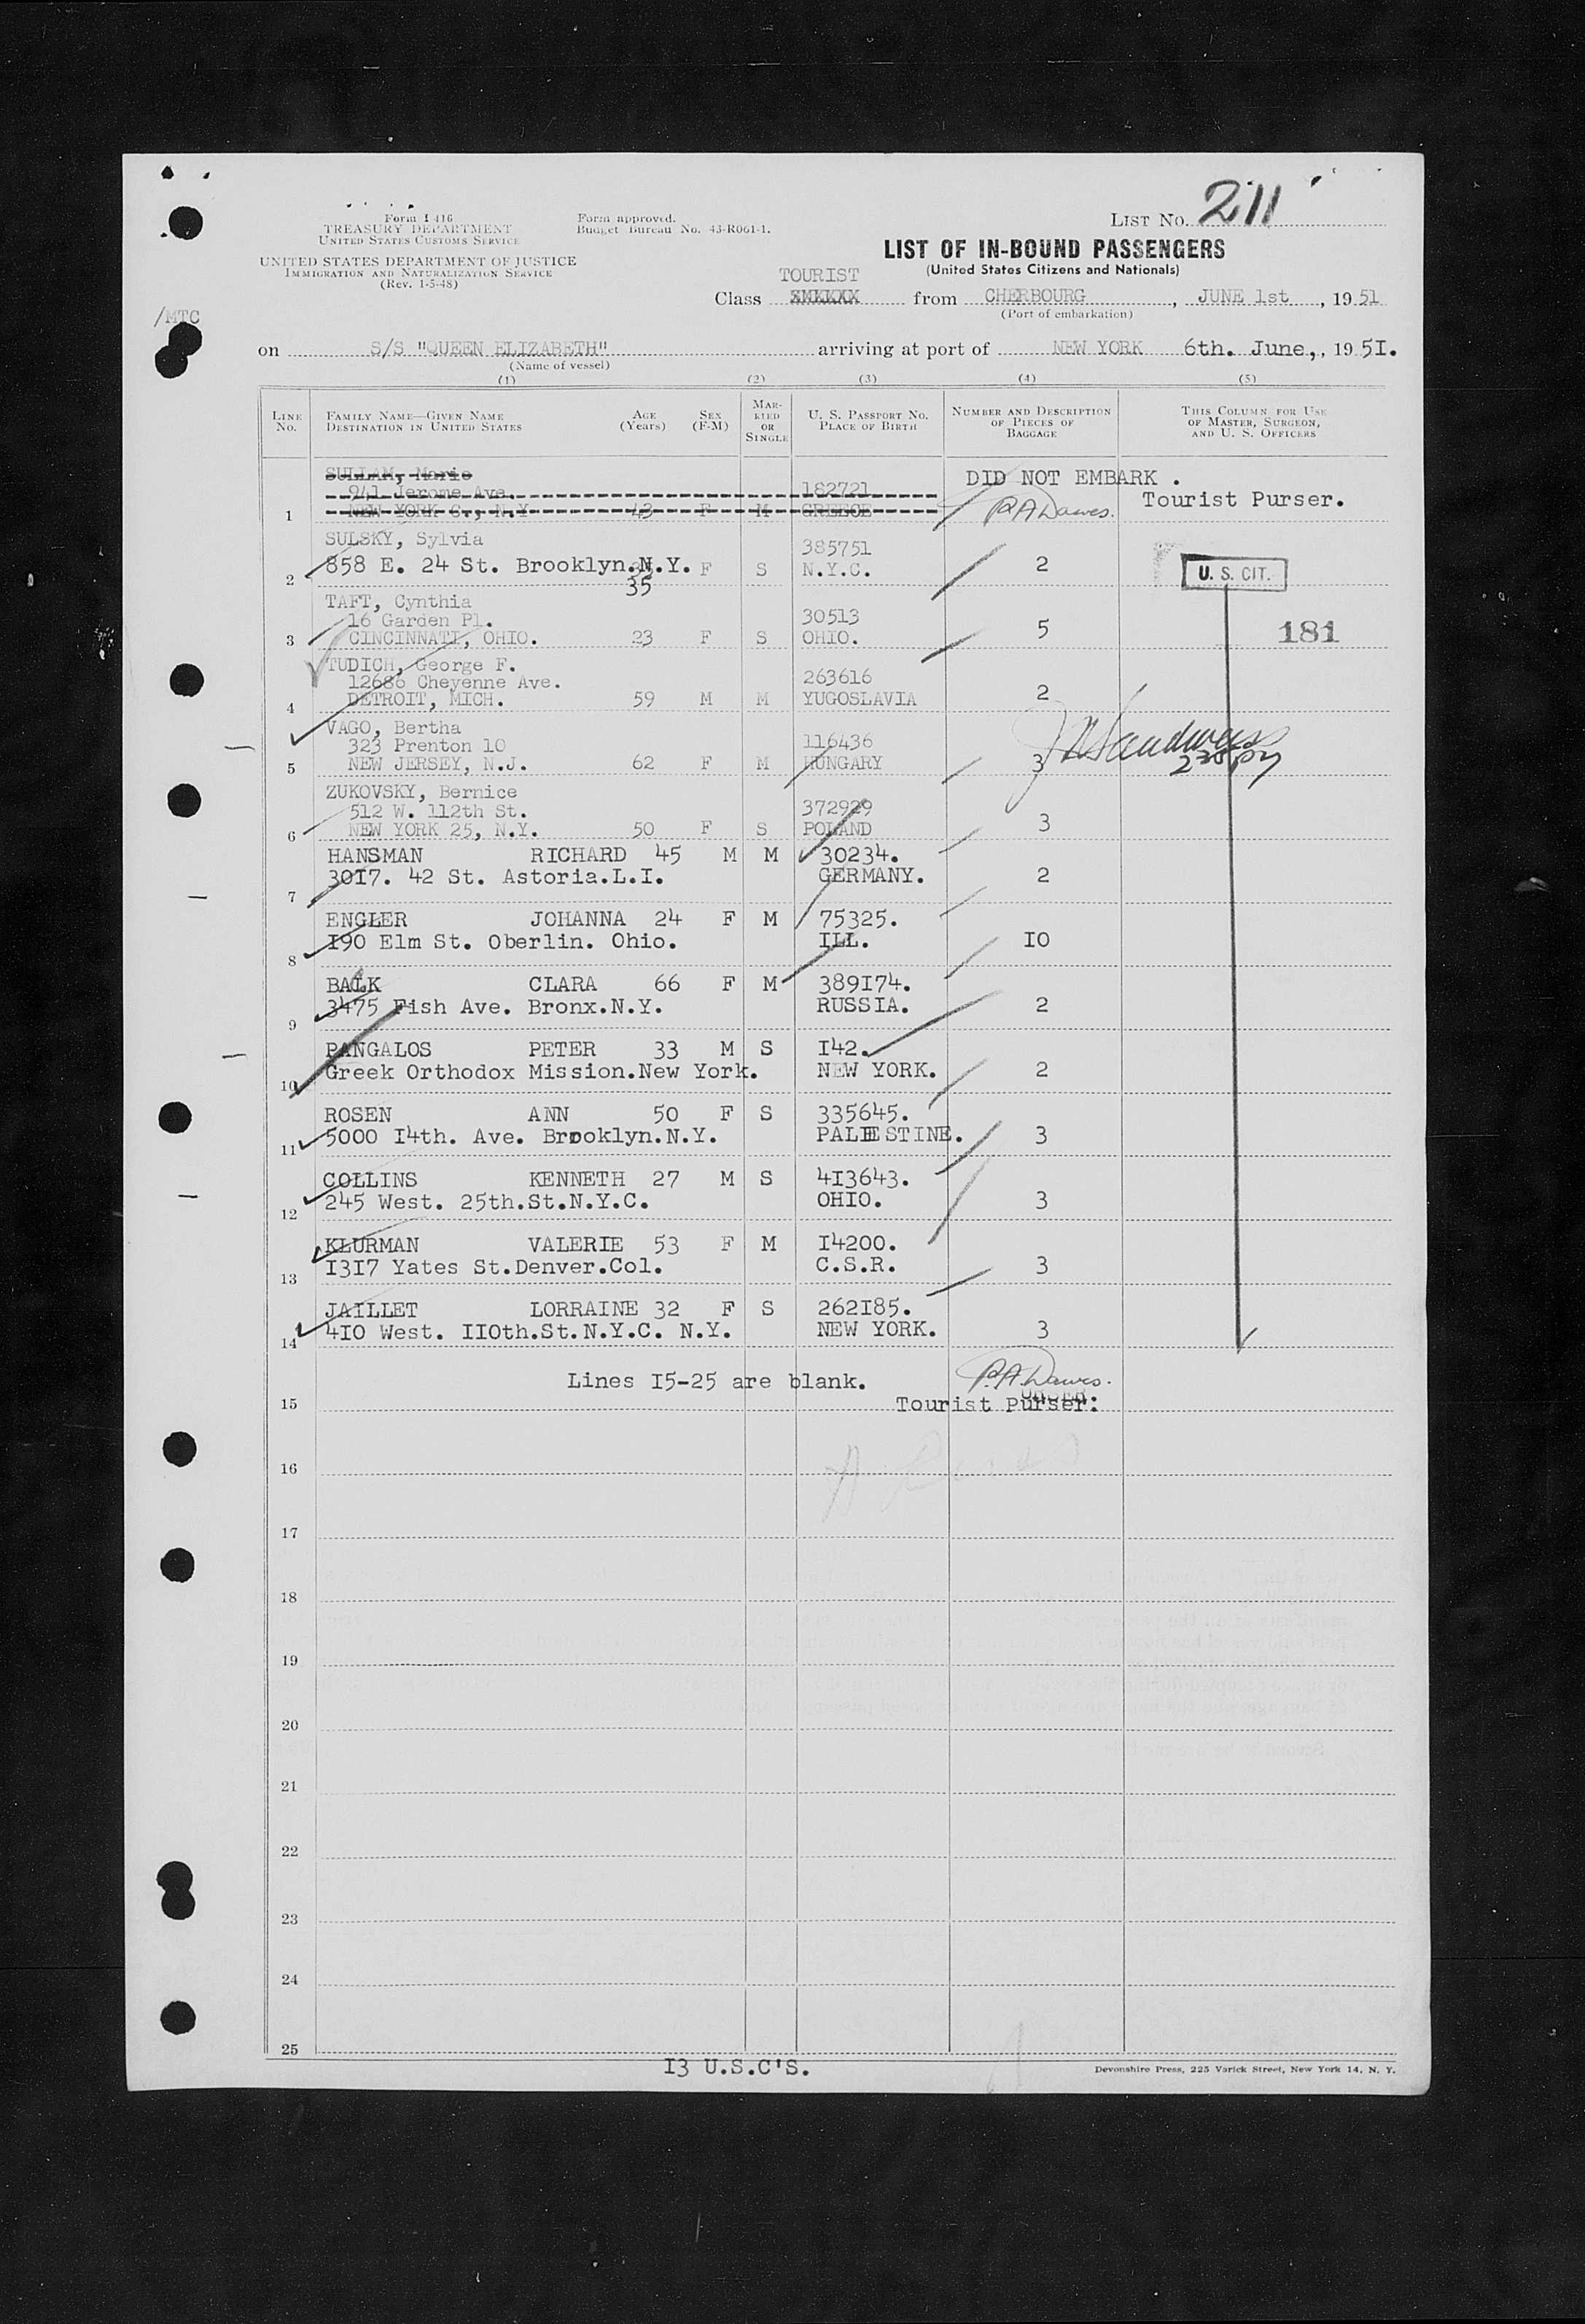 LIST No. 211
Form I 416
TREASURY DEPARTMENT
UNITED STATES CUSTOMS SERVICE
Form approved.
Budget Bureau No. 43-R061-1.
UNITED STATES DEPARTMENT OF JUSTICE
IMMIGRATION AND NATURALIZATION SERVICE
(Rev. 1-5-48)
LIST OF IN-BOUND PASSENGERS
(United States Citizens and Nationals)
TOURIST
Class from CHERBOURG, JUNE 1st, 1951
(Port of embarkation)
/MTC
on S/S "QUEEN ELIZABETH" arriving at port of NEW YORK 6th. June,, 1951.
(Name of vessel)
(1) (2) (3) (4) (5)
LINE No. FAMILY NAME—GIVEN NAME DESTINATION IN UNITED STATES AGE (Years) SEX (F-M) MARRIED OR SINGLE U. S. PASSPORT No. PLACE OF BIRTH NUMBER AND DESCRIPTION OF PIECES OF BAGGAGE THIS COLUMN FOR USE OF MASTER, SURGEON, AND U. S. OFFICERS
SULLAM, Marie DID NOT EMBARK .
941 Jerome Ave. 182721 Tourist Purser.
1 NEW YORK C., N.Y 43 F M GREECE P.A.Dawes.
SULSKY, Sylvia 385751
2 858 E. 24 St. Brooklyn.N.Y. F S N.Y.C. 2 U. S. CIT.
35
TAFT, Cynthia
16 Garden Pl. 30513
3 CINCINNATI, OHIO. 23 F S OHIO. 5 181
TUDICH, George F.
12686 Cheyenne Ave. 263616
4 DETROIT, MICH. 59 M M YUGOSLAVIA 2
VAGO, Bertha
323 Prenton 10 116436
5 NEW JERSEY, N.J. 62 F M HUNGARY 3
ZUKOVSKY, Bernice
512 W. 112th St. 372929
6 NEW YORK 25, N.Y. 50 F S POLAND 3
HANSMAN RICHARD 45 M M 30234.
7 3017. 42 St. Astoria.L.I. GERMANY. 2
ENGLER JOHANNA 24 F M 75325.
8 190 Elm St. Oberlin. Ohio. ILL. 10
BALK CLARA 66 F M 389174.
9 3475 Fish Ave. Bronx.N.Y. RUSSIA. 2
PANGALOS PETER 33 M S 142.
10 Greek Orthodox Mission.New York. NEW YORK. 2
ROSEN ANN 50 F S 335645.
11 5000 14th. Ave. Brooklyn.N.Y. PALESTINE. 3
COLLINS KENNETH 27 M S 413643.
12 245 West. 25th.St.N.Y.C. OHIO. 3
KLURMAN VALERIE 53 F M 14200.
13 1317 Yates St.Denver.Col. C.S.R. 3
JAILLET LORRAINE 32 F S 262185.
14 410 West. 110th.St.N.Y.C. N.Y. NEW YORK. 3
Lines 15-25 are blank. P.A.Dawes.
15 Tourist Purser:
16
17
18
19
20
21
22
23
24
25
13 U.S.C'S.
Devonshire Press, 225 Varick Street, New York 14, N. Y.